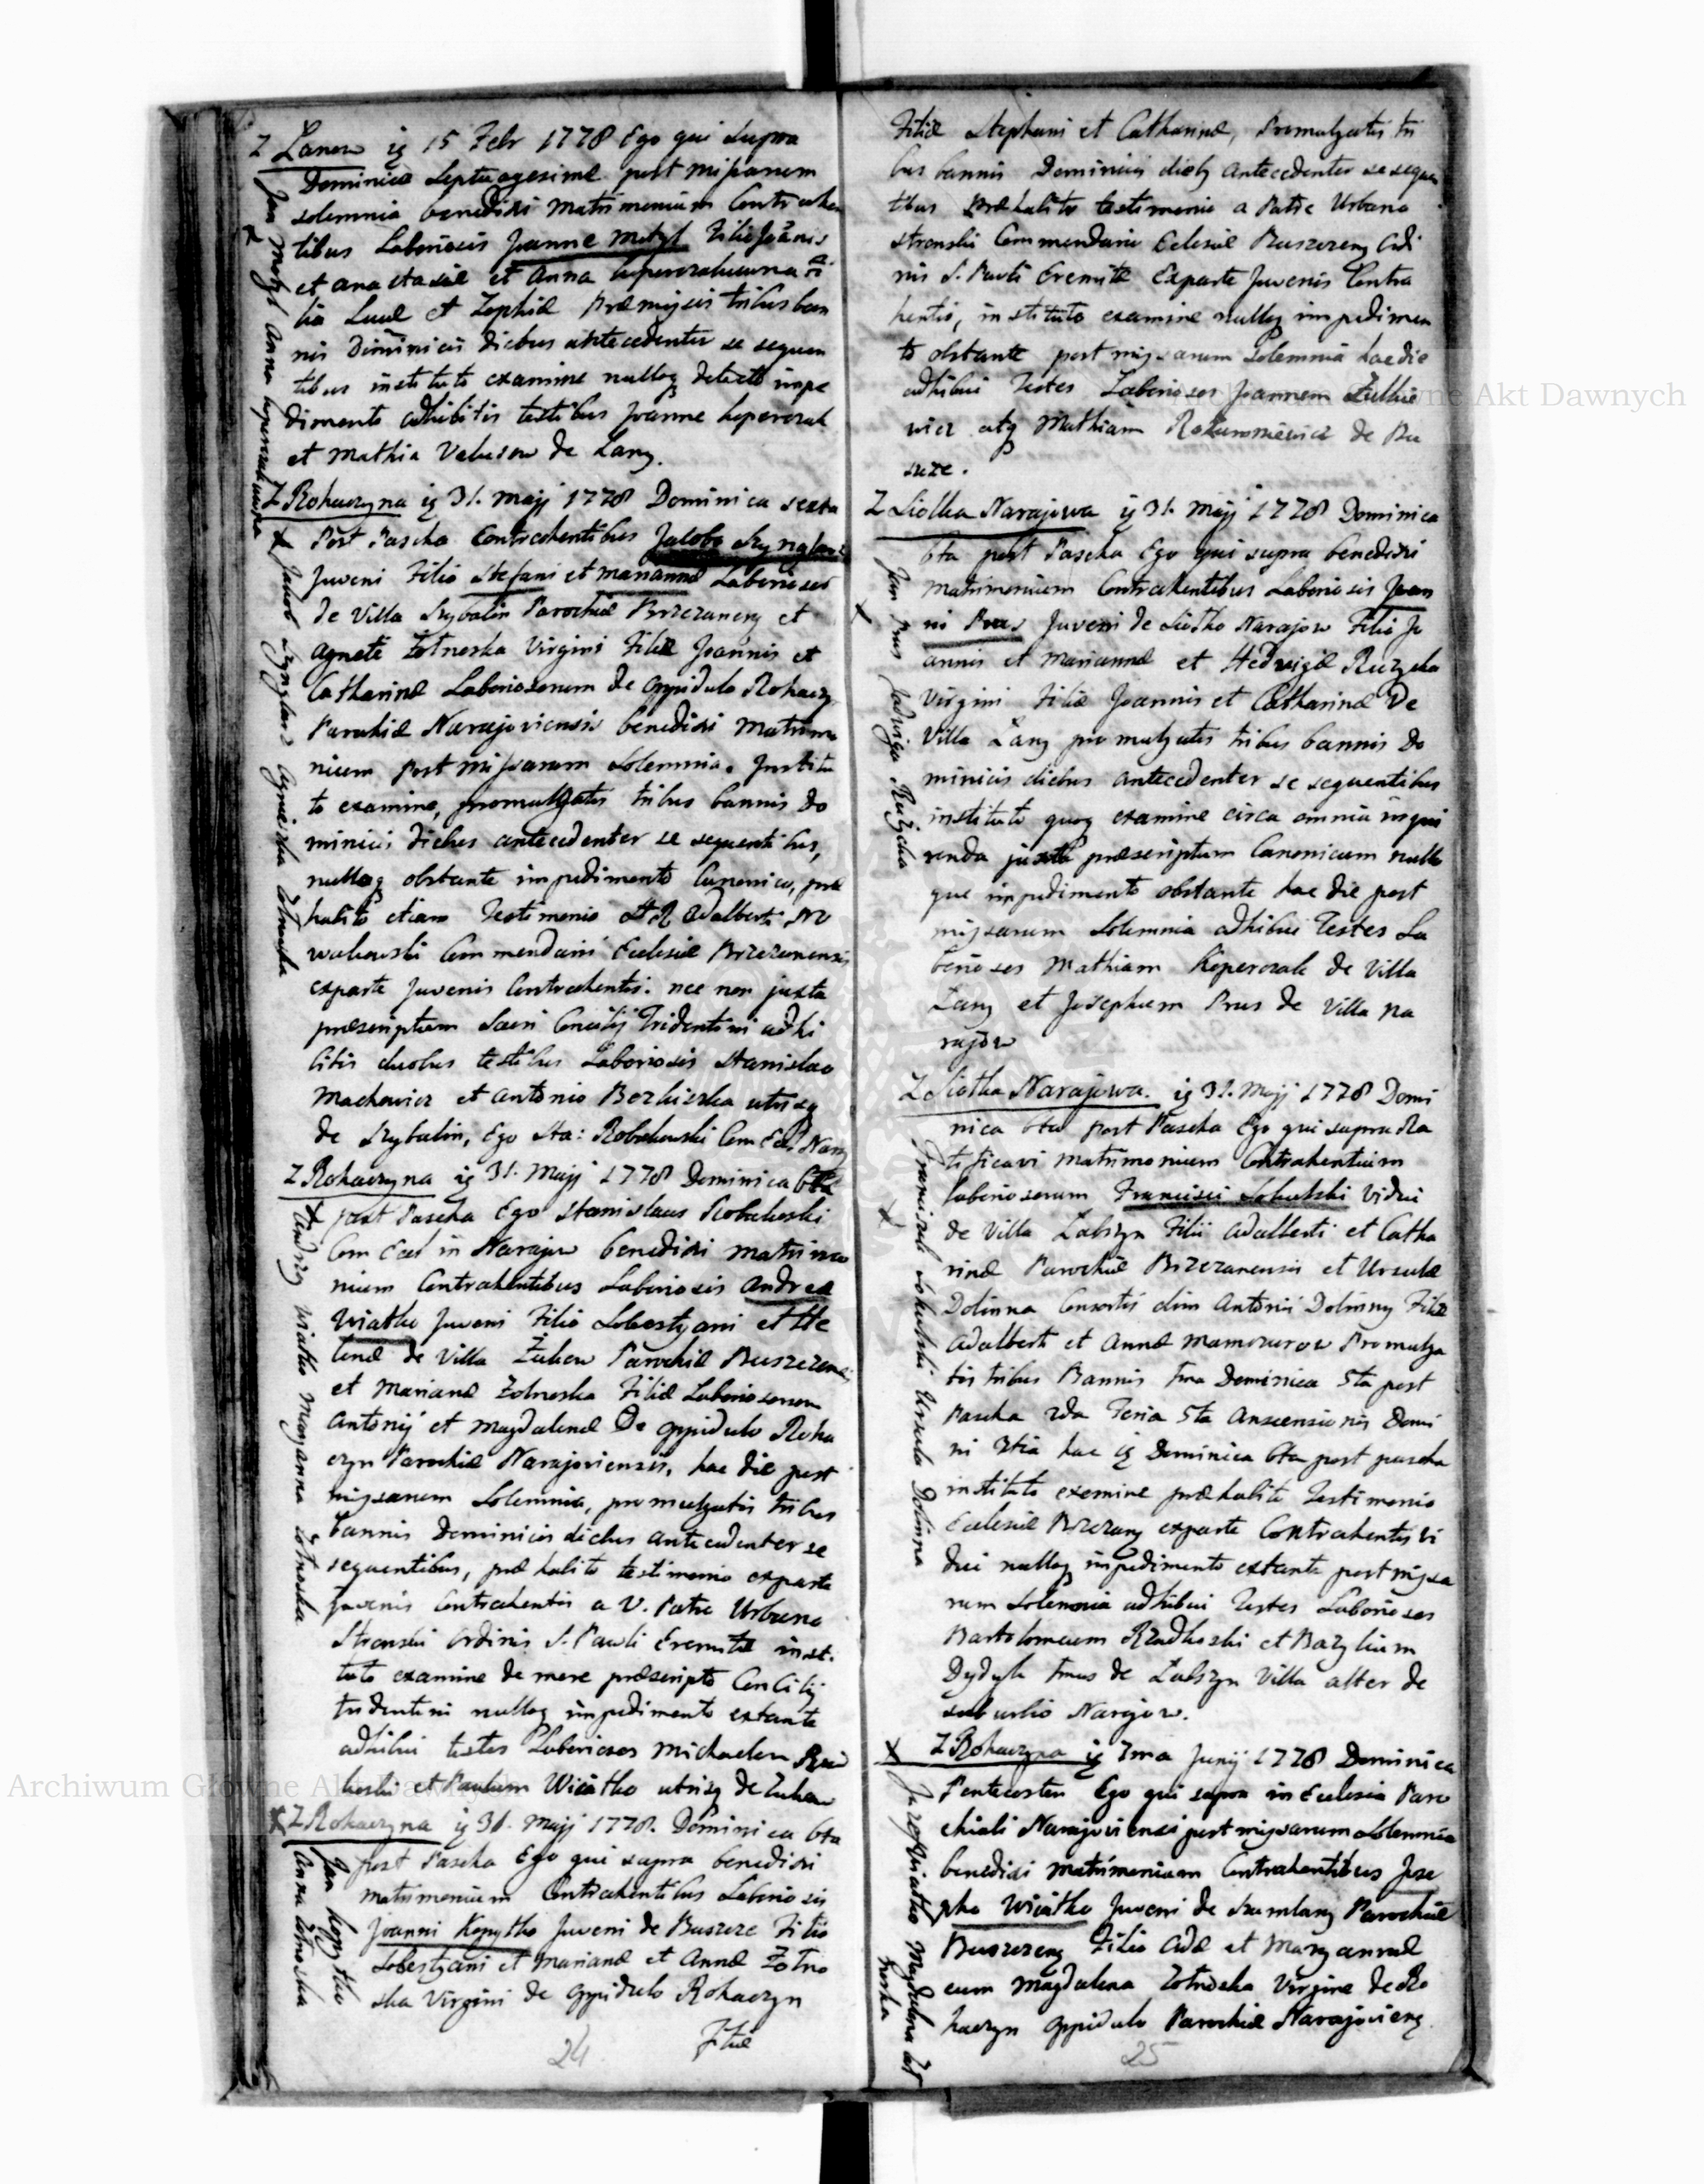 Z Lanow ig 15 Febr 1778 Ego qui supra
Dominica Septuagesimæ post missarum
solemnia benedixi matrimonium Contrahen
tibus Laboriosis Joanne Motyl Filio Joānis
et anastasiæ et Anna koperczakuwna Fi
lia Lucæ et Zophiæ Præmissis tribus ban
nis Diminicis diebus antecedenter se sequen
tibus instituto examine nulloq detecto impe
dimento adhibitis testibus Joanne koperczak
et Mathia de Lany.
Jan Motyl Anna koperczakuwna
Z Rohaczyna ig 31. Maij 1778 Dominica sexta
Post Pascha Contrahentibus Jacobo Szynglarz
Juveni Filio Stefani et mariannæ Laboriosor
de Villa Szybalin Parochiæ Brzezaneng et
Agnete Żotneska Virgini Filiæ Joannis et
Catharinæ Laboriosorum de Oppidulo Rohaczy
Parochiæ Narajoviensis benedixi Matrimo
nium post Missarum Solemnia. Institu
to examine, promulgatis tribus bannis Do
minicis diebus antecedenter se sequentibus,
nulloq obstante impedimento Canonico, præ
habito etiam Testimonio Adalberti No
wakowski Commendarii Ecclesiæ Brzezanensis
exparte Juvenis Contrahentis. nec non juxta
præscriptum Sacri Concilij Tridentini adhi
bitis duobus testibus Laboriosis Stanislao
Machowicz et Antonio Bezkiszka utrisq
de Szybalin, Ego Sta: Robakowski Com Ecl: Naraj
Jakub Szynglarz Agnieszka Żotneska
Z Rohaczyna ig 31. Maij 1778 Dominica 6ta
post Pascha Ego Stanislaus Robakoski
Com Ecl in Narajow benedixi matrimo
nium Contrahentibus Laboriosis Andreæ
Wiatko Juveni Filio Sobestyani et He
lenæ de Villa Żukow Parochiæ Buszczeneng
et Marianæ Żotneska Filiæ Laboriosorum
Antonij et Magdalenæ De Oppidulo Roha
czyn Parochiæ Narajoviensis, hac die post
missarum Solemnia, promulgatis tribus
bannis Dominicis diebus antecedenter se
sequentibus, præhabito testimonio exparte
Juvenis Contrahentis a V. Patre Urbano
Stronski Ordinis S. Pauli Eremitæ insti
tuto examine de more præscripto Concilij
tridentini nulloq impedimento extante
adhibui testes Laboriosos Michaelem
et Paulum Wiatko utrisq de Zukow
Andrzy Wiatko Maryanna Żotneska
Z Rohaczyna ig 31. Maij 1778. Dominica 6ta
post Pascha Ego qui supra benedixi
matrimonium Contrahentibus Laboriosis
Joanni Kopytko Juveni de Buszcze Filio
Sobestyani et Marianæ et Annæ Żotne
ska Virgini de Oppidulo Rohaczyn
Filiæ
Jan kopytko
Anna Żotneska
24
Filiæ Stephani et Catharinæ, Promulgatis tri
bus bannis Dominicis dieb antecedenter se sequen
tibus præhabito testimonio a Patre Urbano
Stronski Commendario Eclesiæ Buszczeng Ordi
nis S. Pauli Eremitæ Exparte Juvenis Contra
hentis, instituto examine nulloq impedimen
to obstante post missarum Solemnia hac die
adhibui Testes Laboriosos Joannem
atq Mathiam de Bu
szcze.
Z Siolka Narajowa ig 31. Maij 1778 Dominica
6ta post Pascha Ego qui supra benedixi
matrimonium Contrahentibus Laboriosis Joan
ni Prus Juveni de Siolko Narajow Filio Jo
annis et Mariannæ et Hedvigæ Ruzycka
Virgini Filiæ Joannis et Catharinæ De
Villa Lany promulgatis tribus bannis Do
minicis diebus antecedenter se sequentibus
instituto quoq examine circa omnia inqui
renda juxta præscriptum Canonicum nullo
que impedimento obstante hac die post
missarum Solemnia adhibui Testes La
boriosos Mathiam Koperczak de Villa
Lany et Josephum Prus de Villa Na
rajow
Jan Prus Jadwiga Ruzycka
Z Siolka Narajowa. ig 31. Maij 1778 Domi
nica 6ta post Pascha Ego qui supra Ra
tificavi matrimonium Contrahentium
laboriosorum Francisci Sokulski Vidui
de Villa Labszyn Filii Adalberti et Catha
rinæ Parochiæ Brzezanensis et Ursulæ
Dolinna Consortis olim Antonii Dolinny Filiæ
Adalberti et Annæ Mamczurow Promulga
tis tribus Bannis 1ma Dominica 5ta post
Pascha 2da Feria 5ta Anscensionis Domi
ni 3tia hac ig Dominica 6ta post pascha
instituto exemine præhabito Testimonio
Eclesiæ Brzezany exparte Contrahentis Vi
dui nulloq impedimento extante post missa
rum Solemnia adhibui Testes Laboriosos
Bartolomeum Rzadkoski et Bazylium
Dydyk 1mus de Labszyn Villa alter de
suburbio Narajow.
Franciszek Sokulski Ursula Dolinna
Z Rohaczyna ig 7ma Junij 1778 Dominica
Pentecosten Ego qui supra in Eclesia Paro
chiali Narajoviensi post missarum Solemnia
benedixi matrimonium Contrahentibus Jose
pho Wiatko Juveni de Szumlany Parochiæ
Buszczeng Filio Adæ et Maryannæ
cum Magdalena Żotneska Virgine de Ro
haczyn Oppidulo Parochiæ Narajovieng
Jozef Wiatko Magdalena Żot
neska
25
Archiwum Główne Akt Dawnych
Archiwum Główne Akt Dawnych